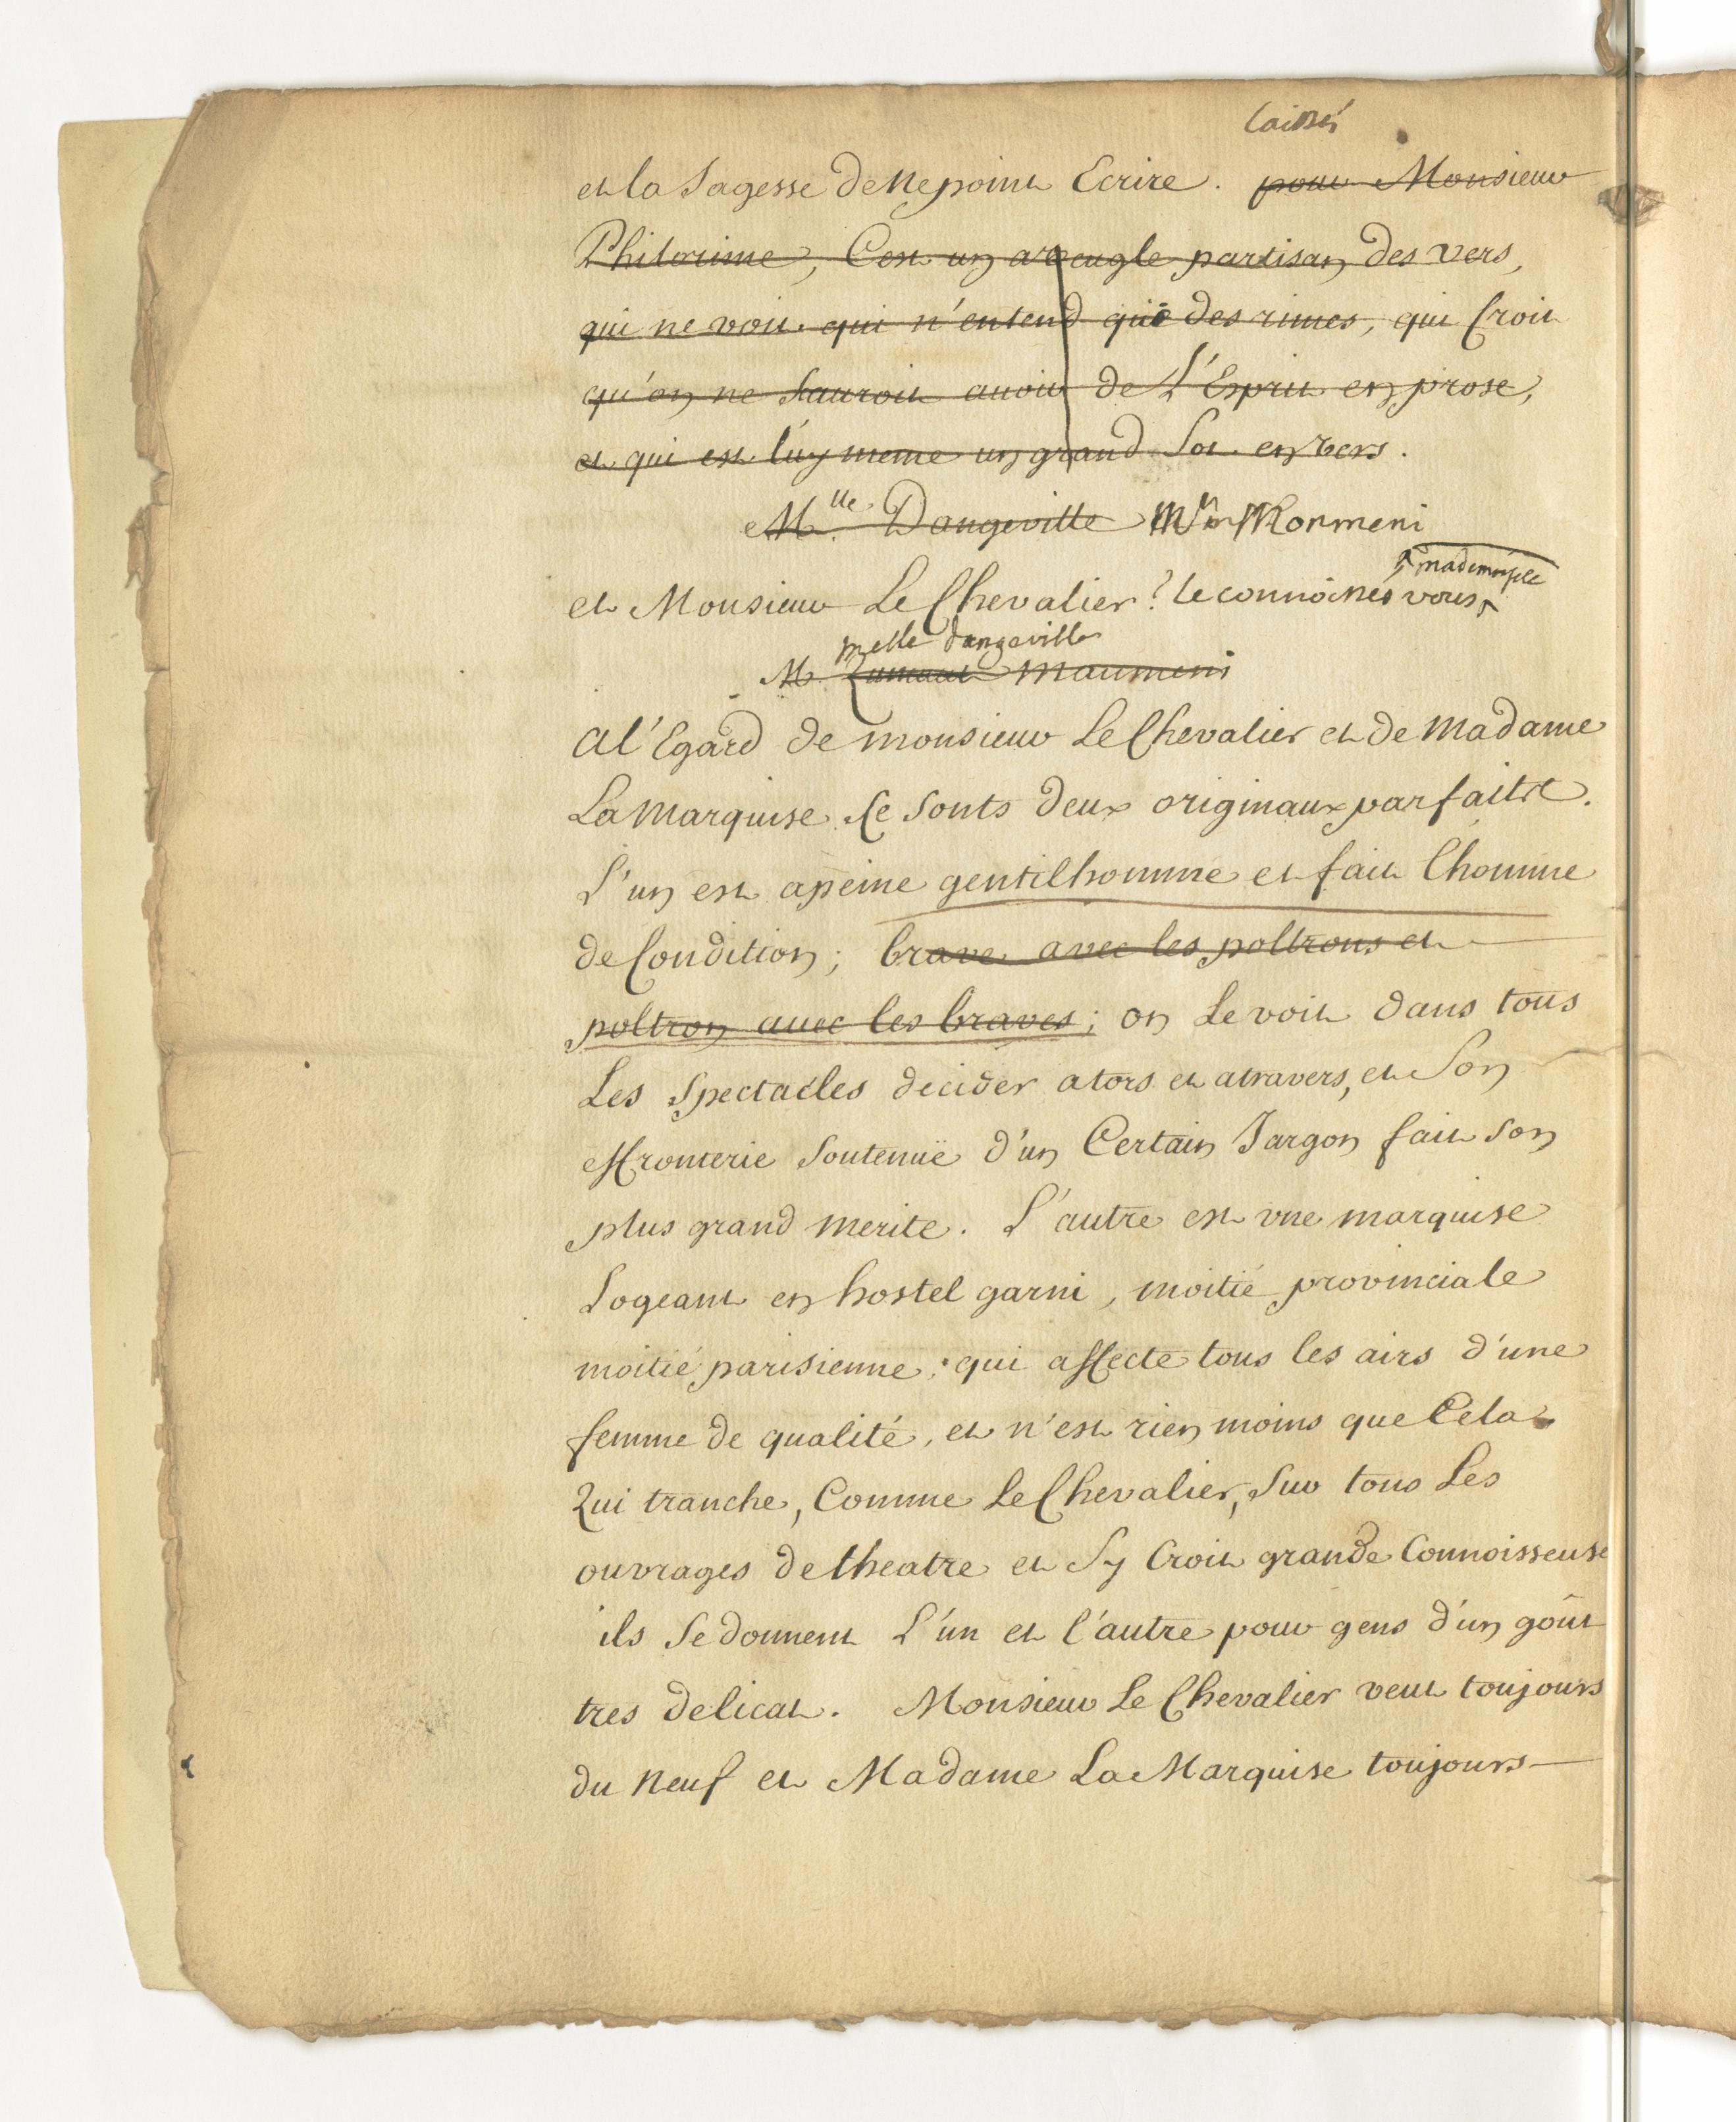 laissés
et la Sagesse de Ne point Ecrire. pour Monsieur
Philorime, C'est un aveugle partisan des vers,
qui ne voit qui n'entend que des rimes, qui Croit
qu'on ne Sauroit avoir de L'Esprit en prose,
et qui est luy meme un grand Sot en vers.
Mlle Dangeville Mr Monmeni
et Monsieur Le Chevalier? le connoissés vous mademoiselle
melle dangeville
M. Maumeni
al'Egard de monsieur Le Chevalier et de Madame
La Marquise Ce Sonts deux originaux parfaits.
L'un est apeine gentilhomme et fait l'homme
de Condition; brave avec les poltrons et
poltron avec les braves; on Le voit dans tous
Les Spectacles decider a tors et atravers, et Son
effronterie Soutenuë d'un Certain Jargon fait son
plus grand merite. L'autre est vne marquise
Logeant en hostel garni, moitié provinciale
moitié parisienne, qui affecte tous les airs d'une
femme de qualité, et n'est rien moins que Cela
Qui tranche, Comme Le Chevalier, Sur tous Les
ouvrages de theatre et Sy Croit grande Connoisseuse
ils Se donnent L'un et l'autre pour gens d'un goût
tres delicat. Monsieur Le Chevalier veut toujours
du Neuf et Madame La Marquise toujours